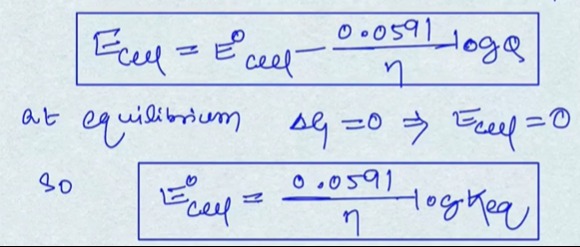 E_cell = E⁰_cell - 0.0591/n log Q
at equilibrium ΔG = 0 ⇒ E_cell = 0
so E⁰_cell = 0.0591/n log Keq